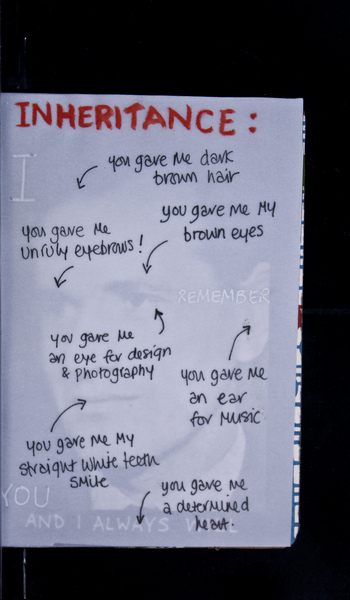 INHERITANCE:
I
you gave me dark
brown hair
you gave me my
brown eyes
you gave me
unruly eyebrows!
REMEMBER
you gave me
an eye for design
& photography
you gave me
an ear
for music
you gave me my
straight white teeth
smile
you gave me
a determined
heart.
YOU
AND I ALWAYS